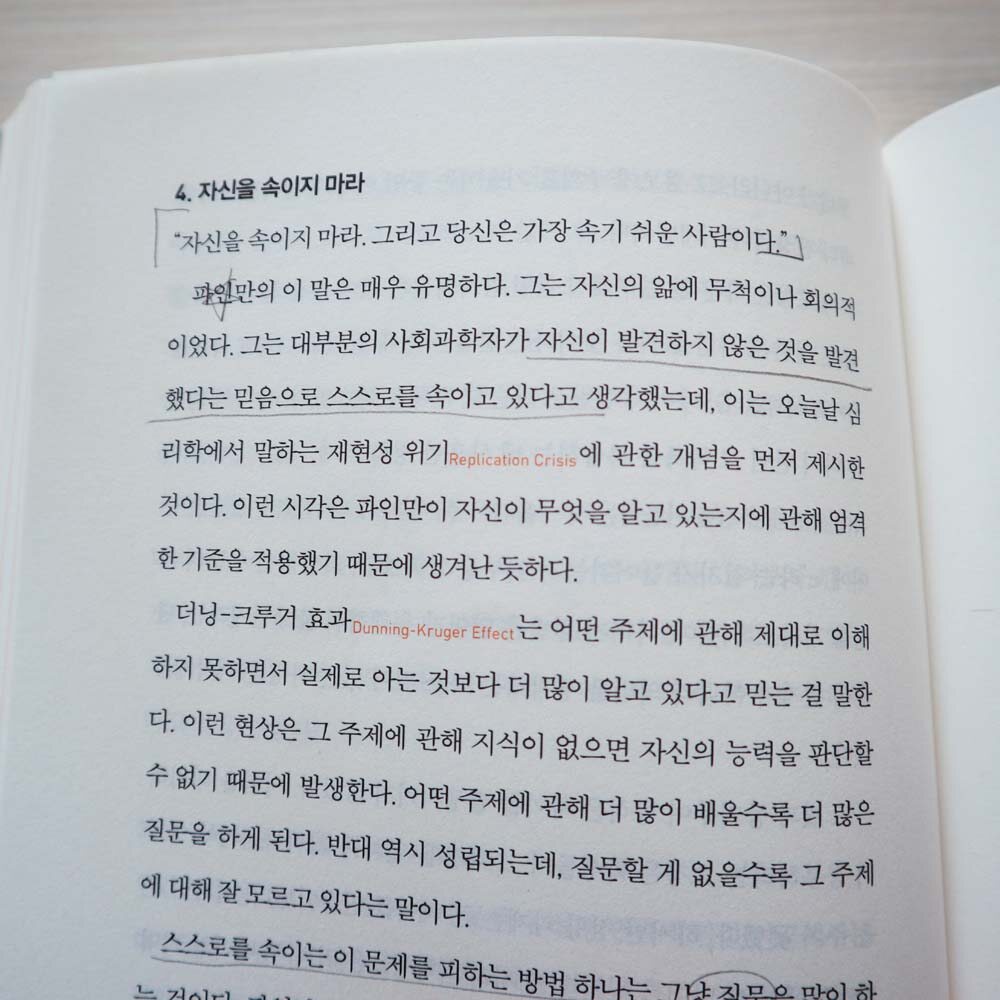 4. 자신을 속이지 마라
“자신을 속이지 마라. 그리고 당신은 가장 속기 쉬운 사람이다.”
파인만의 이 말은 매우 유명하다. 그는 자신의 앎에 무척이나 회의적
이었다. 그는 대부분의 사회과학자가 자신이 발견하지 않은 것을 발견
했다는 믿음으로 스스로를 속이고 있다고 생각했는데, 이는 오늘날 심
리학에서 말하는 재현성 위기Replication Crisis에 관한 개념을 먼저 제시한
것이다. 이런 시각은 파인만이 자신이 무엇을 알고 있는지에 관해 엄격
한 기준을 적용했기 때문에 생겨난 듯하다.
더닝-크루거 효과Dunning-Kruger Effect는 어떤 주제에 관해 제대로 이해
하지 못하면서 실제로 아는 것보다 더 많이 알고 있다고 믿는 걸 말한
다. 이런 현상은 그 주제에 관해 지식이 없으면 자신의 능력을 판단할
수 없기 때문에 발생한다. 어떤 주제에 관해 더 많이 배울수록 더 많은
질문을 하게 된다. 반대 역시 성립되는데, 질문할 게 없을수록 그 주제
에 대해 잘 모르고 있다는 말이다.
스스로를 속이는 이 문제를 피하는 방법 하나는 그냥 질문을 많이 하
는 것이다.